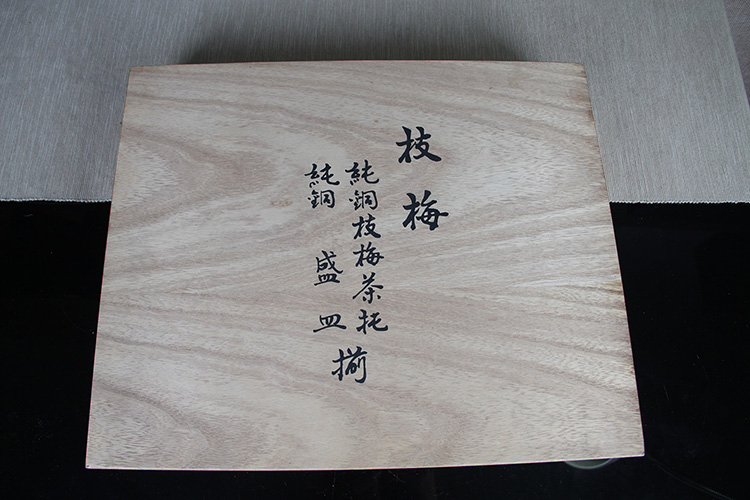 枝梅
純銅枝梅茶托
純銅 盛皿
揃